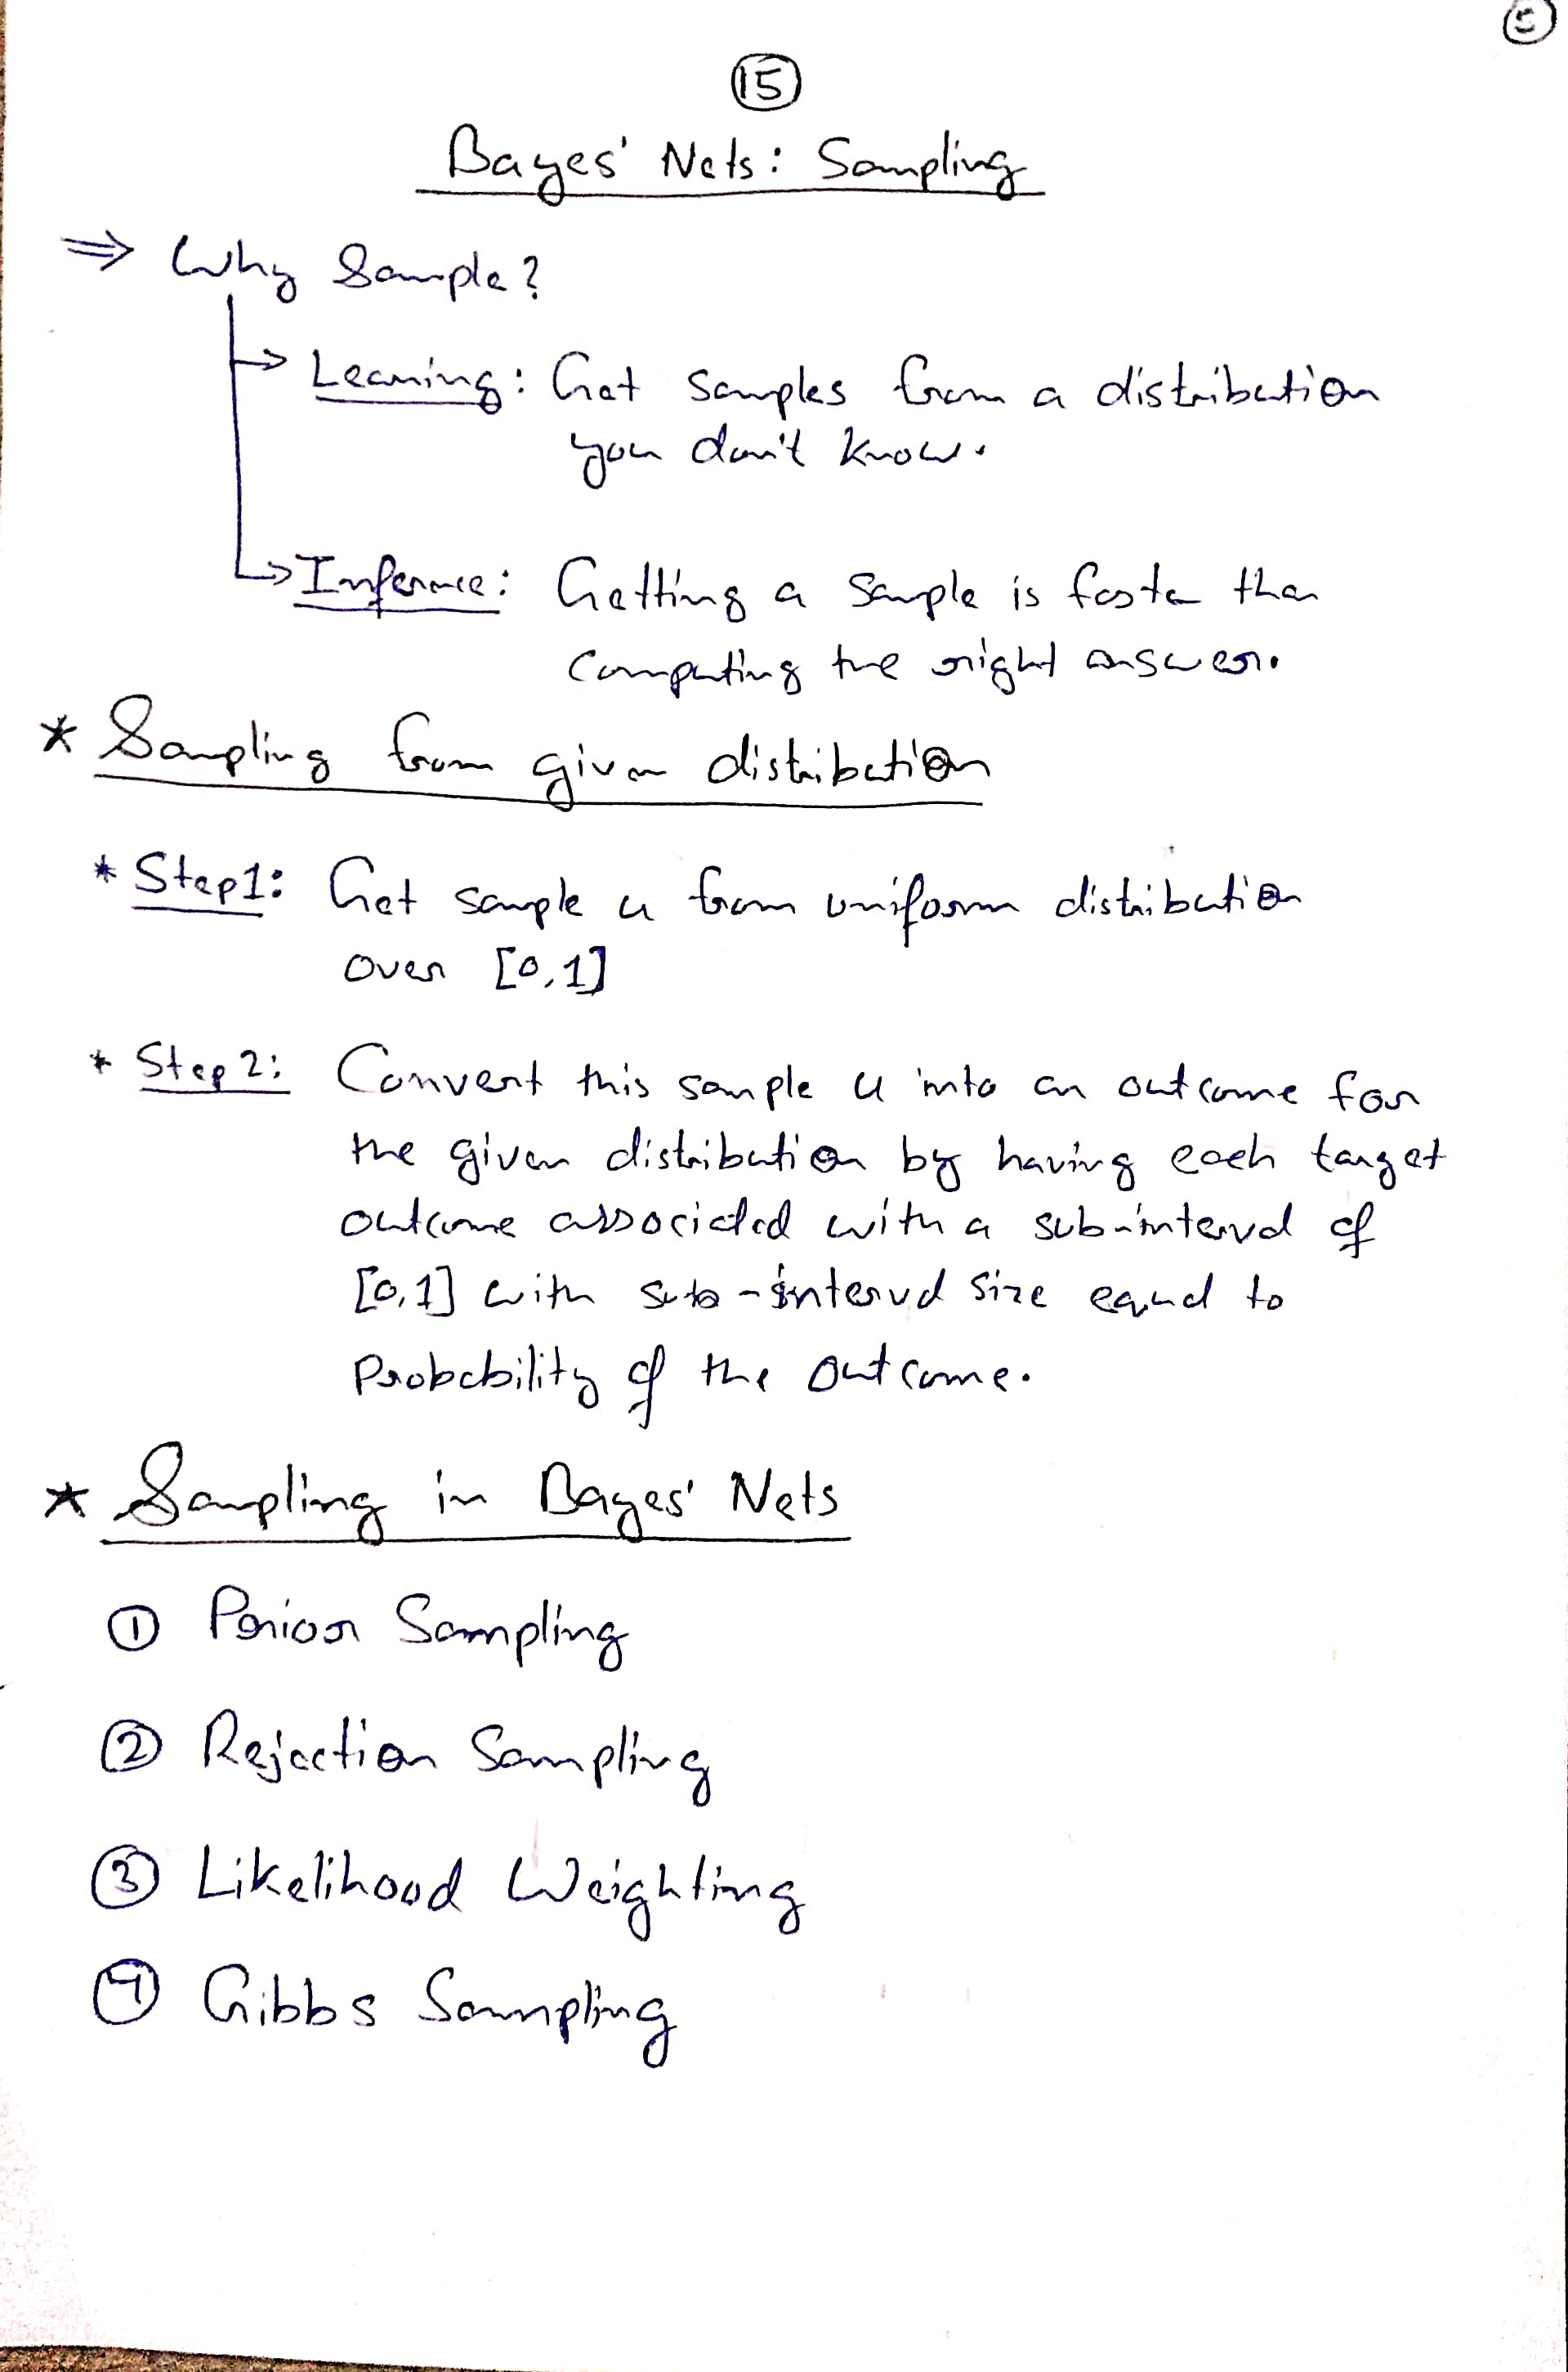 5
15
Bayes' Nets: Sampling
⇒ Why Sample?
→ Learning: Get samples from a distribution
you don't know.
→ Inference: Getting a sample is faster than
computing the right answer.
* Sampling from given distribution
* Step1: Get sample u from uniform distribution
over [0,1]
* Step 2: Convert this sample u into an outcome for
the given distribution by having each target
outcome associated with a sub-interval of
[0,1] with sub-interval size equal to
Probability of the outcome.
* Sampling in Bayes' Nets
① Prior Sampling
② Rejection Sampling
③ Likelihood Weighting
④ Gibbs Sampling